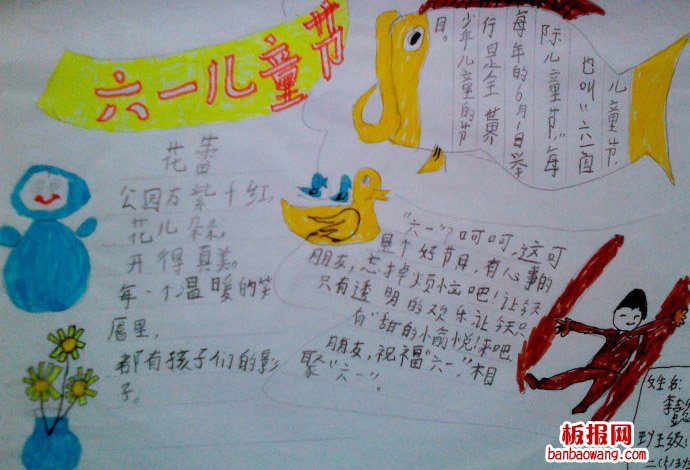 六一儿童节
花蕾
公园万紫千红,
花儿朵朵,
开得真美。
每一个温暖的笑
靥里,
都有孩子们的影
子。
儿童节,
也叫“六一国
际儿童节”每
每年的6月1日举
行是全世界
少年儿童的节
目。
“六一”呵呵,这可
是个好节日,有心事的
朋友,忘掉烦恼吧!让今天
只有透明的欢乐让今天只
有“甜的小愉悦!来吧
朋友,祝福“六一”,相
聚“六一”。
姓名:
李
班级:
板报网
banbaowang.com